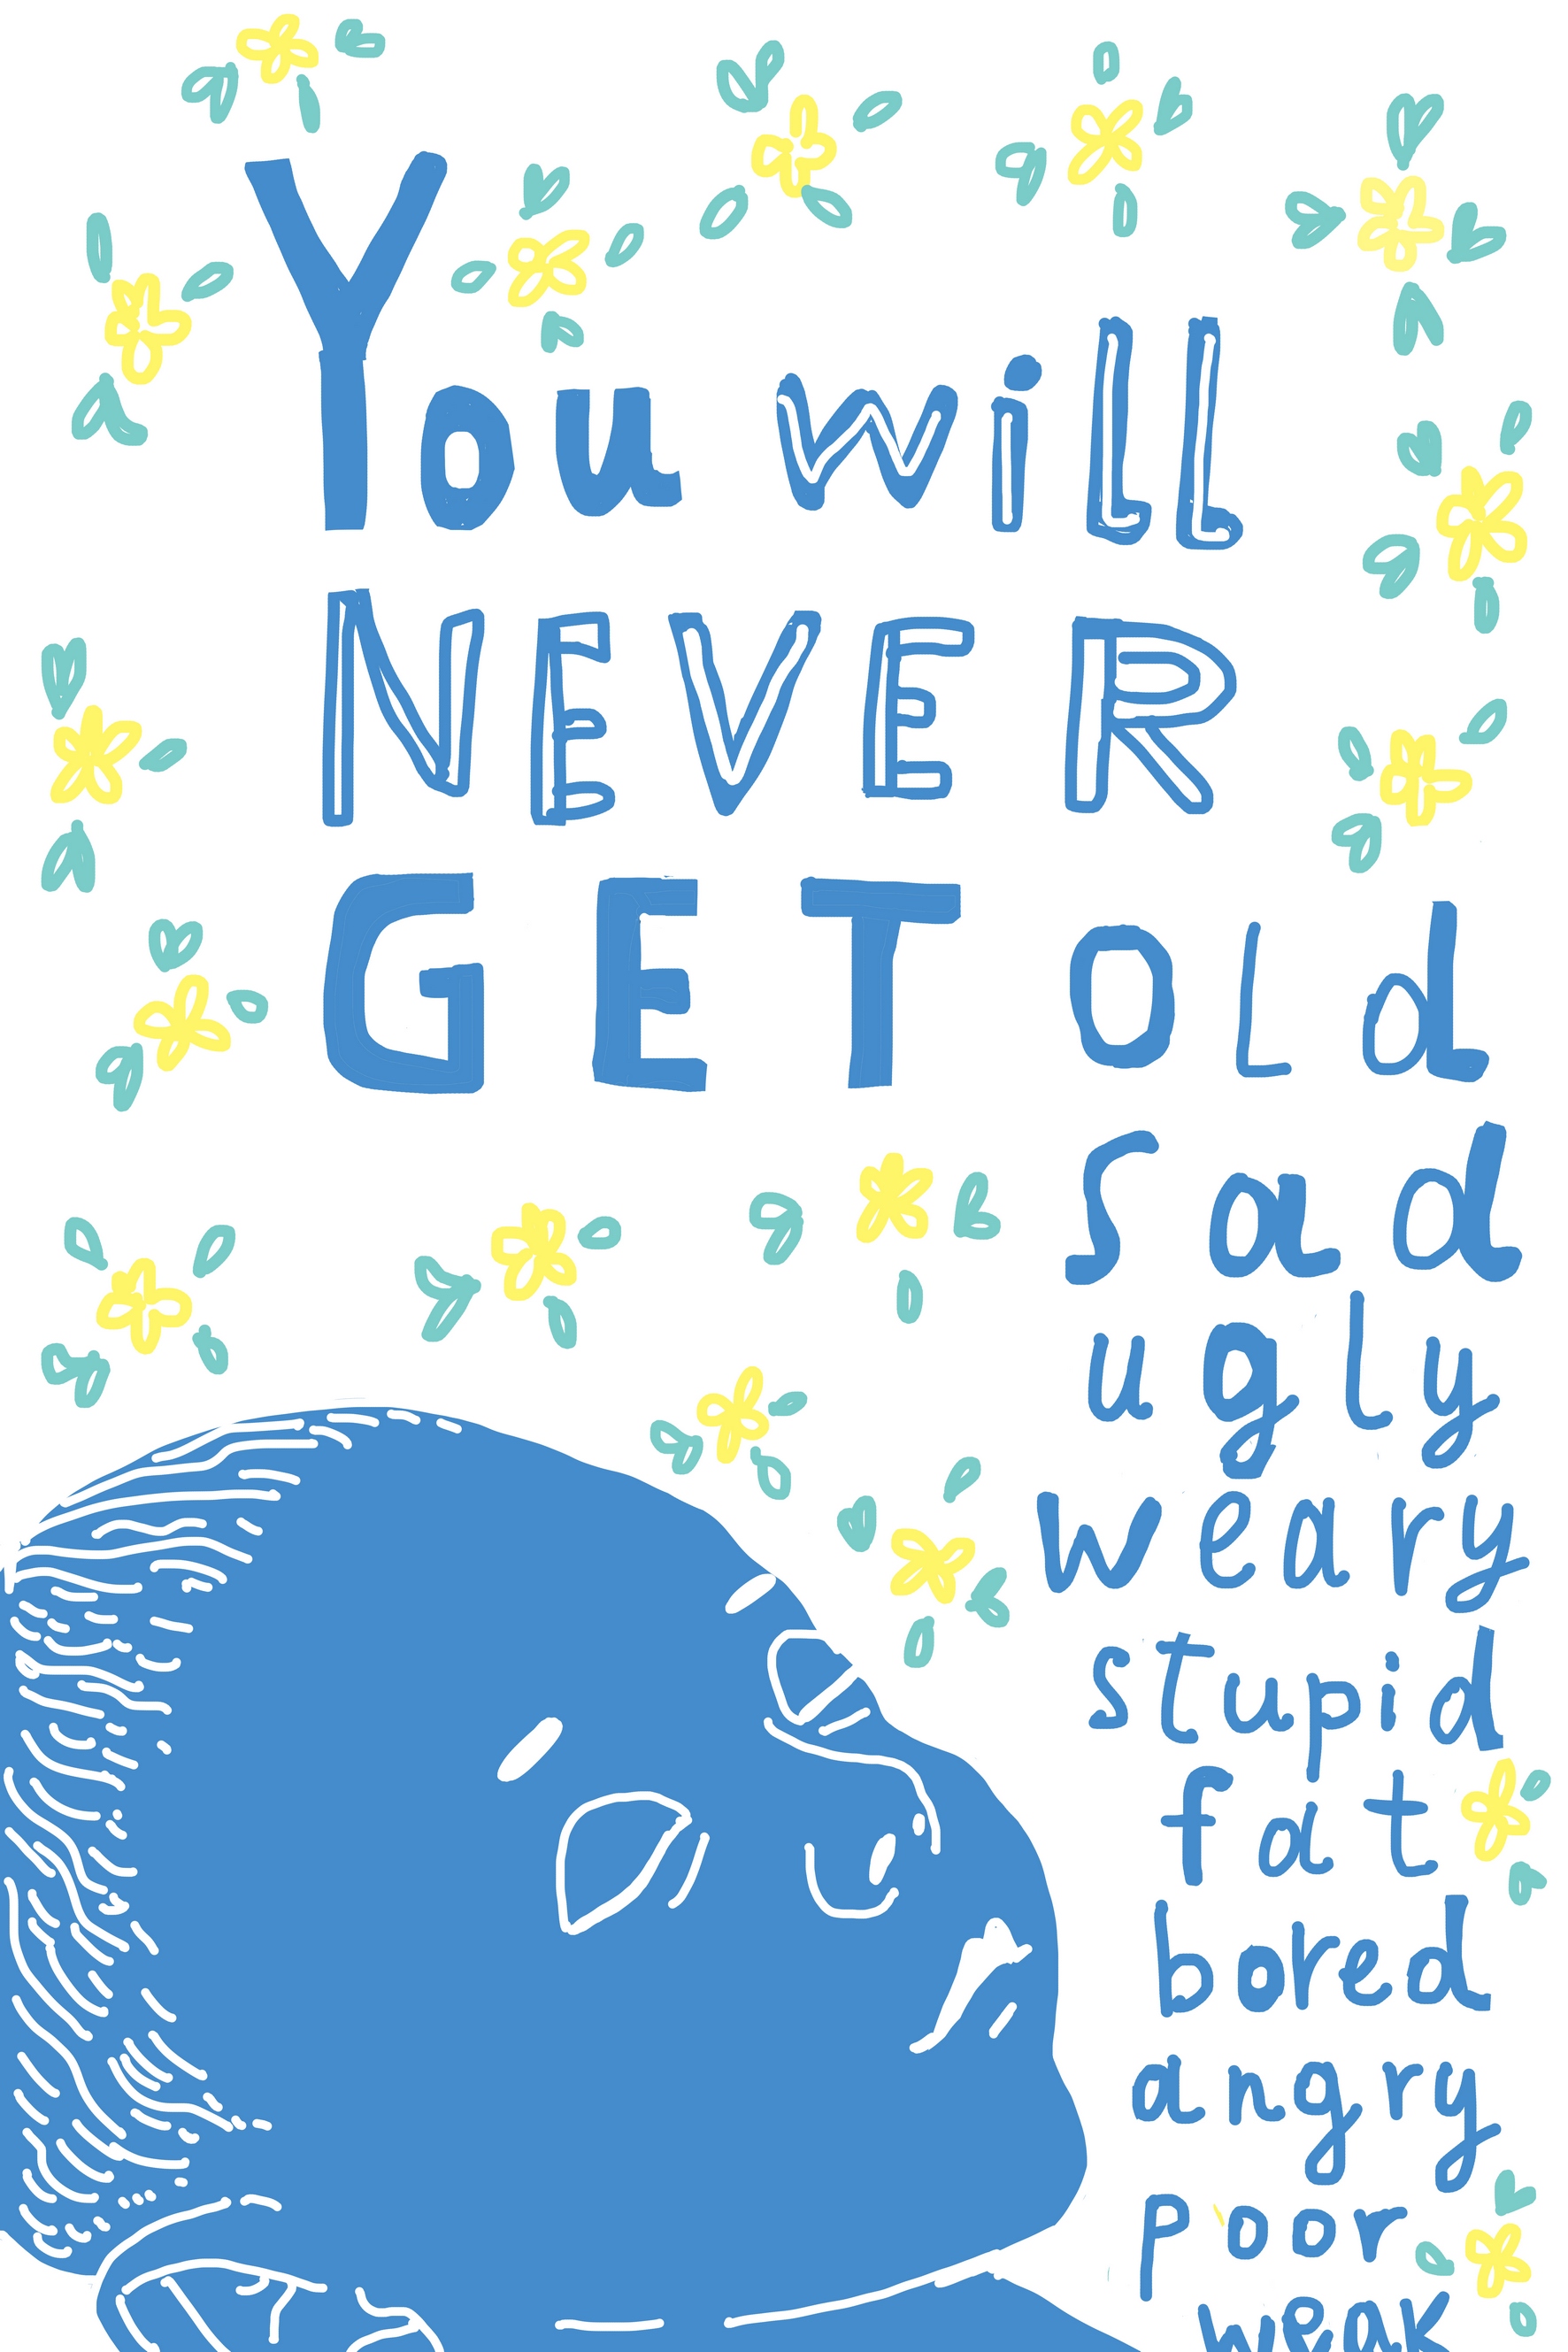 You will
NEVER
GET old
sad
ugly
weary
stupid
fat
bored
angry
poor
weak